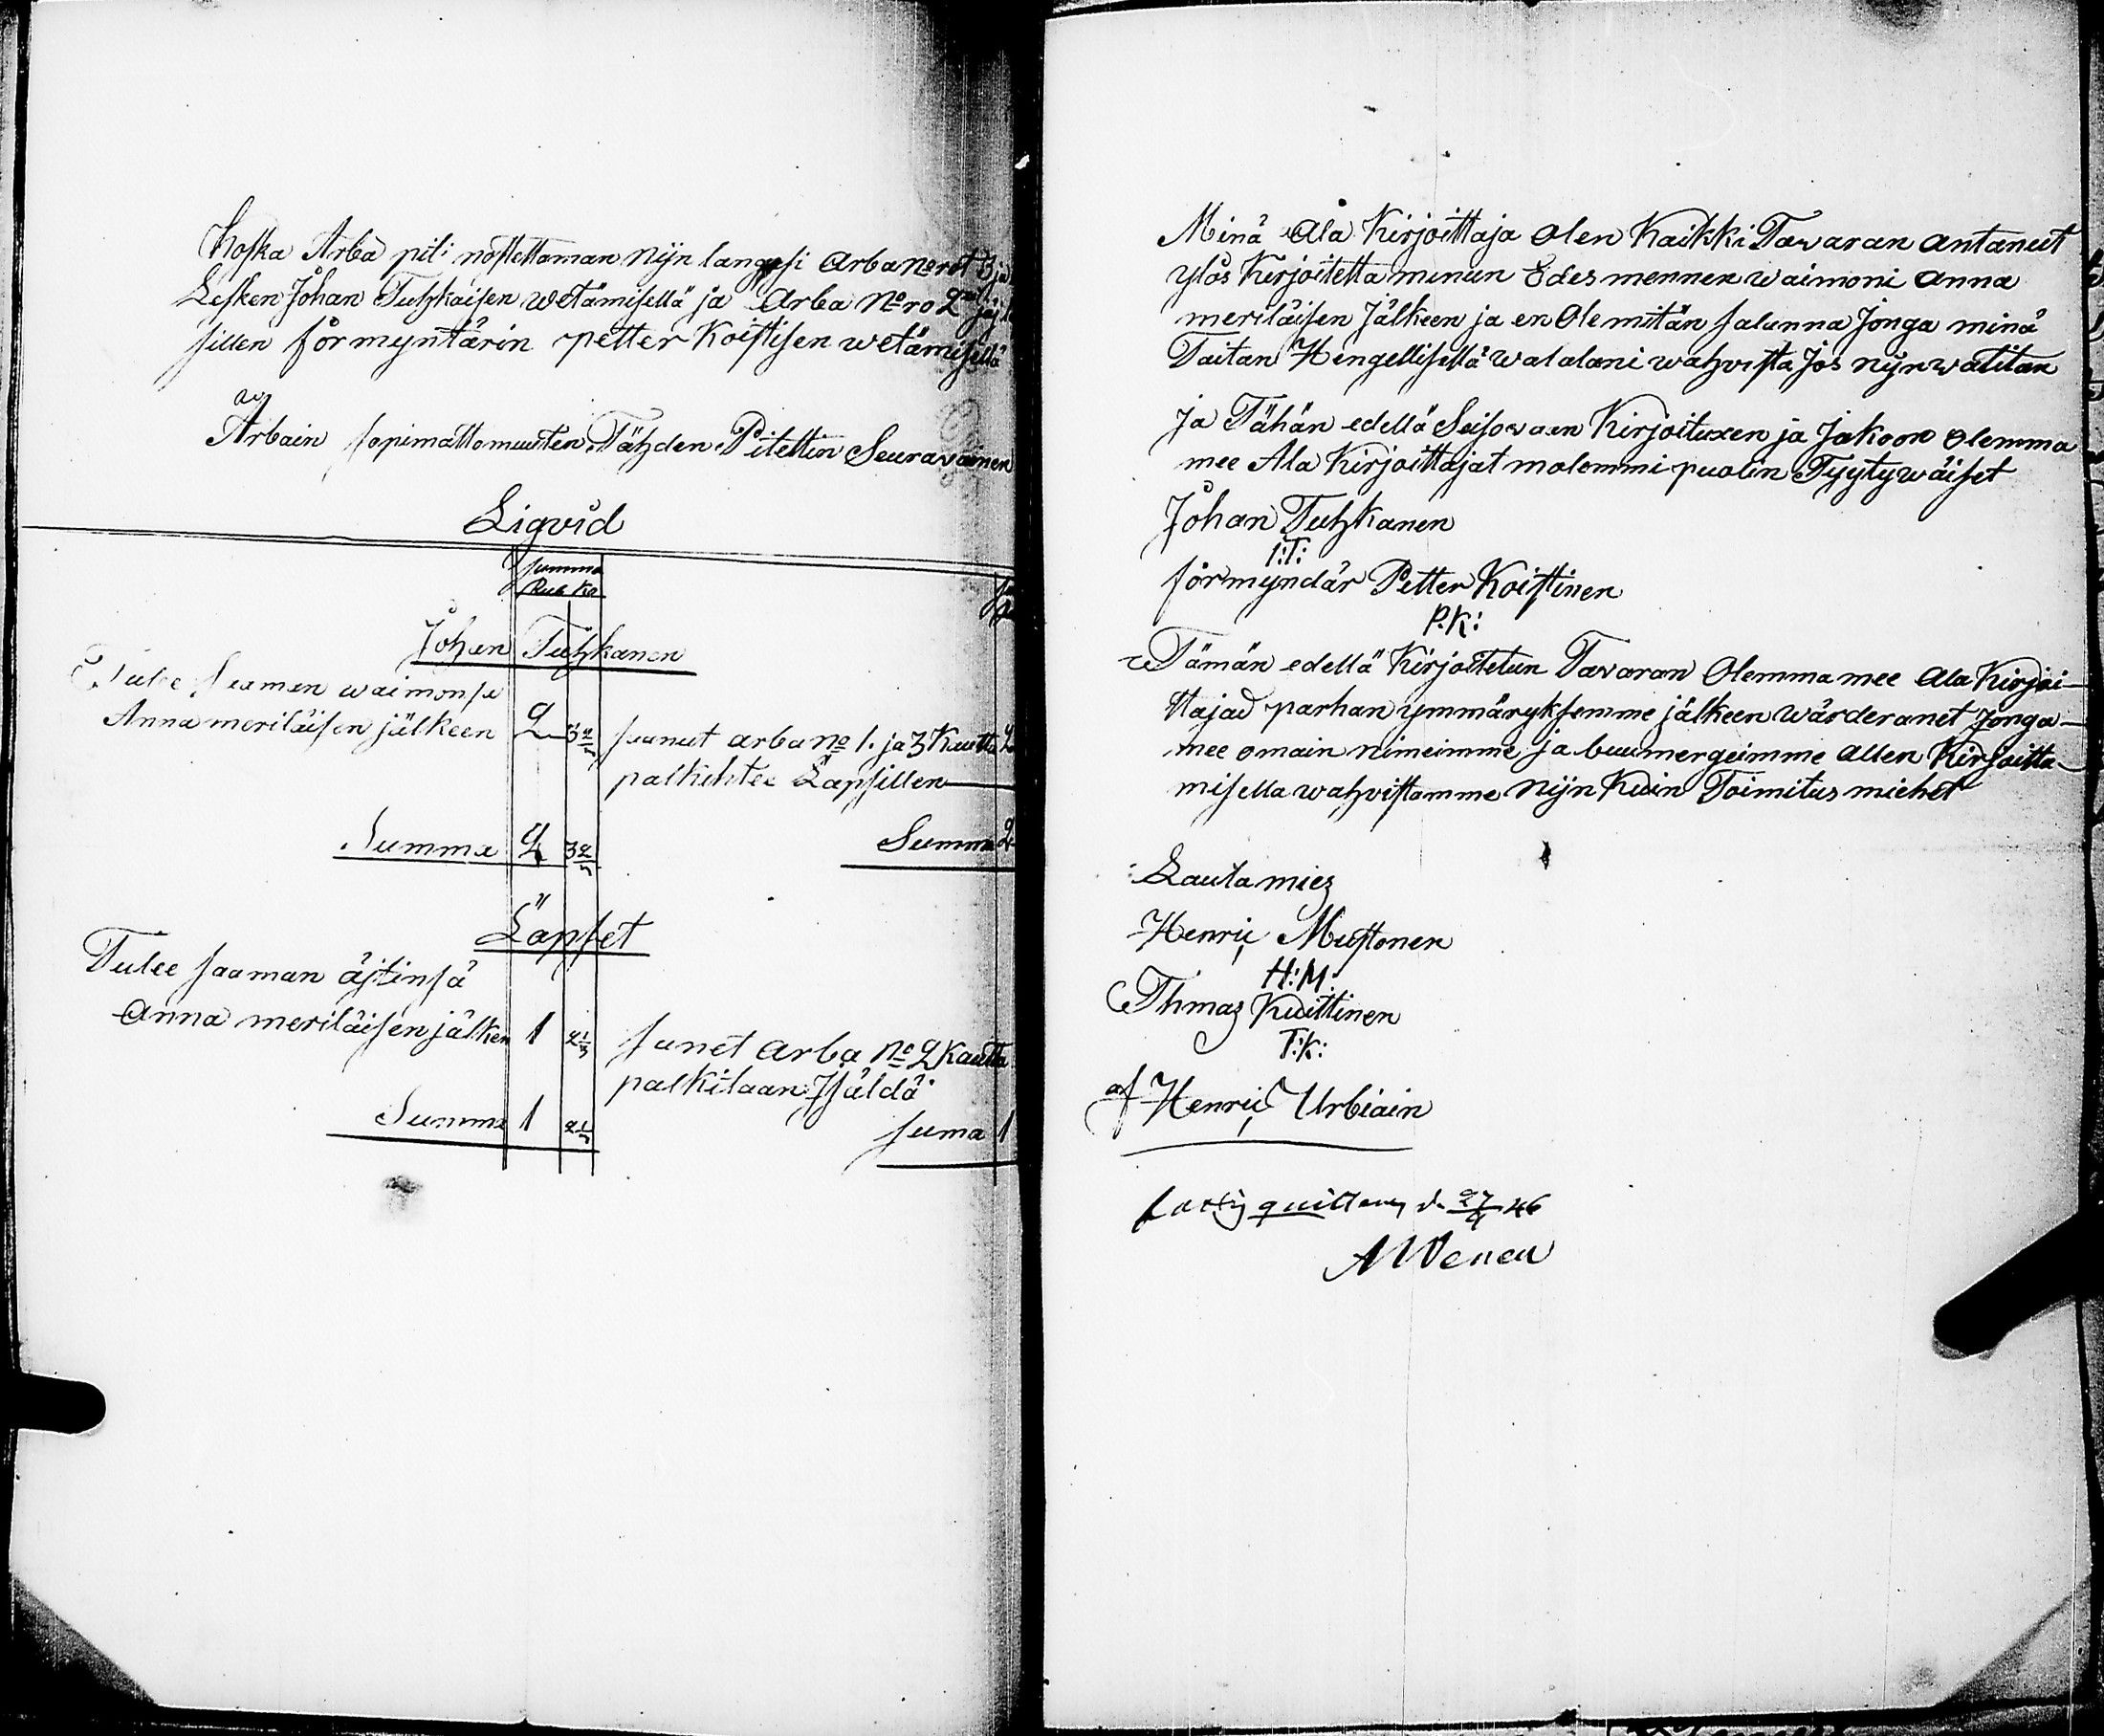 Koska Arba piti nostettaman nijn langeisi Arba No rot 3 ja
Lesken Johan Tuhkaisen wetämisellä ja Arba No ro 2
sillen förmyntärin petter Koistisen wetämisellä
Arbain sopimattomuuten Tähden Pitettin Seuravainen
Liqvid
summa
Rub Ko
Johan Tuhkanen
Tulee saaman waimonsa
Anna meriläisen jälkeen 2 32 saanut arba No 1. ja 3 Kautta 2
palkihtee Lapsillen
Summa 2 32 Summa 2
Lapset
Tulee saaman äjtinsä
Anna meriläisen jälken 1 21 sanet arba No 2 Kautta
palkitaan Isäldä
Summa 1 21 suma 1
Minä Ala Kirjoittaja olen Kaikki Tawaran antanut
ylös Kirjoitetta minun Edes mennen waimoni Anna
meriläisen Jälkeen ja en Ole mitän salanna Jonga minä
Taitan Hengellisellä walalani wahvista Jos nijn watitan
Ja Tähän edellä Seisowaen Kirjoituxen ja Jakoon olemma
mee Ala Kirjoittajat molemmi puolin Tyytywäiset
Johan Tuhkanen
I:T:
förmyndär Petter Koistinen
P:K:
Tämän edellä Kirjoitetun Tavaran Olemma mee Ala Kirjoi-
ttajad parhan ymmäryksemme jälkeen wärderanet Jonga
mee omain nimeimme ja buumergeimme allen Kirjoitta-
misella wahvistamme Nijn Kuin Toimitus miehet
Lautamies
Henric Mustonen
H:M:
Thmas Kuittinen
T:K:
af Henric Urbiain
fattig quitteras d. 27/9 46